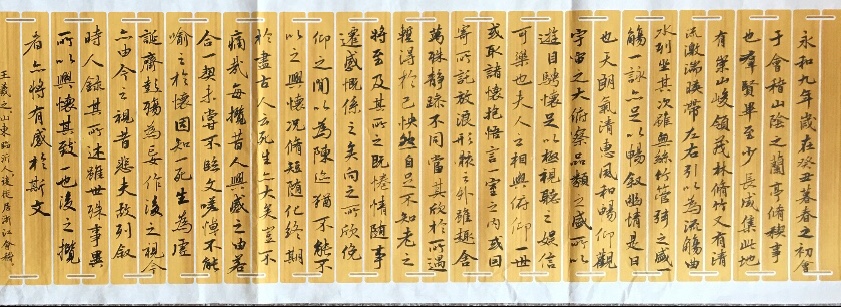 永和九年歲在癸丑暮春之初會
于會稽山陰之蘭亭脩稧事
也群賢畢至少長咸集此地
有崇山峻領茂林脩竹又有清
流激湍暎帶左右引以為流觴曲
水列坐其次雖無絲竹管弦之盛一
觴一詠亦足以暢敘幽情是日
也天朗氣清惠風和暢仰觀
宇宙之大俯察品類之盛所以
遊目騁懷足以極視聽之娛信
可樂也夫人之相與俯仰一世
或取諸懷抱悟言一室之內或因
寄所託放浪形骸之外雖趣舍
萬殊靜躁不同當其欣於所遇
暫得於己快然自足不知老之
將至及其所之既惓情隨事
遷感慨係之矣向之所欣俛
仰之間以為陳迹猶不能不
以之興懷況脩短隨化終期
於盡古人云死生亦大矣豈不
痛哉每攬昔人興感之由若
合一契未嘗不臨文嗟悼不能
喻之於懷固知一死生為虛
誕齊彭殤為妄作後之視今
亦由今之視昔悲夫故列敘
時人錄其所述雖世殊事異
所以興懷其致一也後之攬
者亦將有感於斯文
王羲之山東臨沂人後徙居浙江會稽